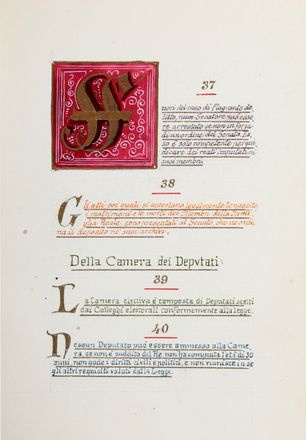 37
Fuori del caso di flagrante de-
litto, niun Senatore può esse-
re arrestato se non in forza
di un ordine del Senato. Es-
so è solo competente per giu-
dicare dei reati imputati ai
suoi membri.
38
Gli atti coi quali si accertano legalmente le nascite
i matrimoni e le morti dei Membri della Fami-
glia Reale, sono presentati al Senato, che ne ordi-
na il deposito ne' suoi archivi.
Della Camera dei Deputati
39
La Camera elettiva è composta di Deputati scelti
dai Colleghi elettorali conformemente alla legge.
40
Nessun Deputato può essere ammesso alla Came-
ra, se non è suddito del Re, non ha compiuta l'età di 30
anni, non gode i diritti civili e politici, e non riunisce in se
gli altri requisiti voluti dalla Legge.